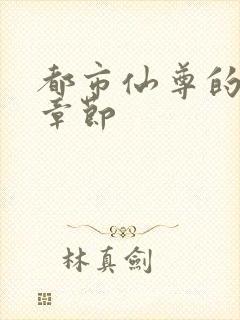 都市仙尊的
章節
林真劍